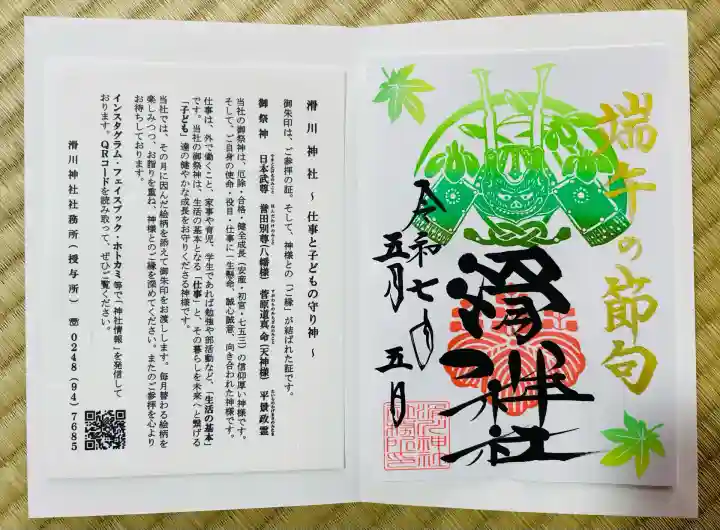 滑川神社 〜 仕事と子どもの守り神 〜
御朱印は、ご参拝の証。そして、神様との「ご縁」が結ばれた証です。
御祭神 日本武尊 誉田別尊(八幡様) 菅原道真命(天神様) 平景政霊
当社の御祭神は、厄除・合格・健全成長(安産・初宮・七五三)の信仰厚い神様です。
そして、ご自身の使命・役目・仕事に一生懸命、誠心誠意、向き合われた神様です。
仕事は、外で働くこと、家事や育児、学生であれば勉強や部活動など、「生活の基本」
です。当社の御祭神は、生活の基本となる「仕事」と、その暮らしを未来へと繋げる
「子ども」達の健やかな成長をお守りくださる神様です。
当社では、その月に因んだ絵柄を添えて御朱印をお渡しします。毎月替わる絵柄を
楽しみつつ、お詣りを重ね、神様とのご縁を深めてください。またのご参拝を心より
お待ちしております。
インスタグラム・フェイスブック・ホトカミ等で「神社情報」を発信して
おります。QRコードを読み取って、ぜひご覧ください。
滑川神社社務所(授与所) ☎0248(94)7685
端午の節句
滑川神社
令和七年
五月五日